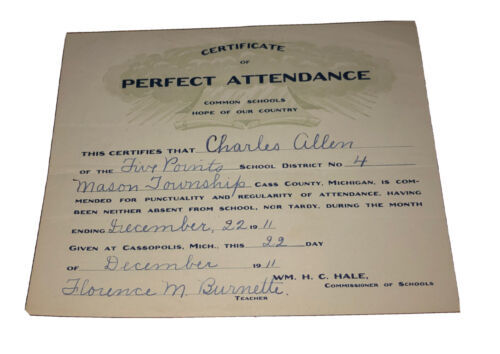 CERTIFICATE
OF
PERFECT ATTENDANCE
COMMON SCHOOLS
HOPE OF OUR COUNTRY
THIS CERTIFIES THAT Charles Allen
OF THE Five Points SCHOOL DISTRICT NO. 4
Mason Township CASS COUNTY, MICHIGAN, IS COM-
MENDED FOR PUNCTUALITY AND REGULARITY OF ATTENDANCE, HAVING
BEEN NEITHER ABSENT FROM SCHOOL, NOR TARDY, DURING THE MONTH
ENDING December, 22 1911
GIVEN AT CASSOPOLIS, MICH., THIS 22 DAY
OF December 1911
WM. H. C. HALE,
Florence M Burnette. COMMISSIONER OF SCHOOLS
TEACHER